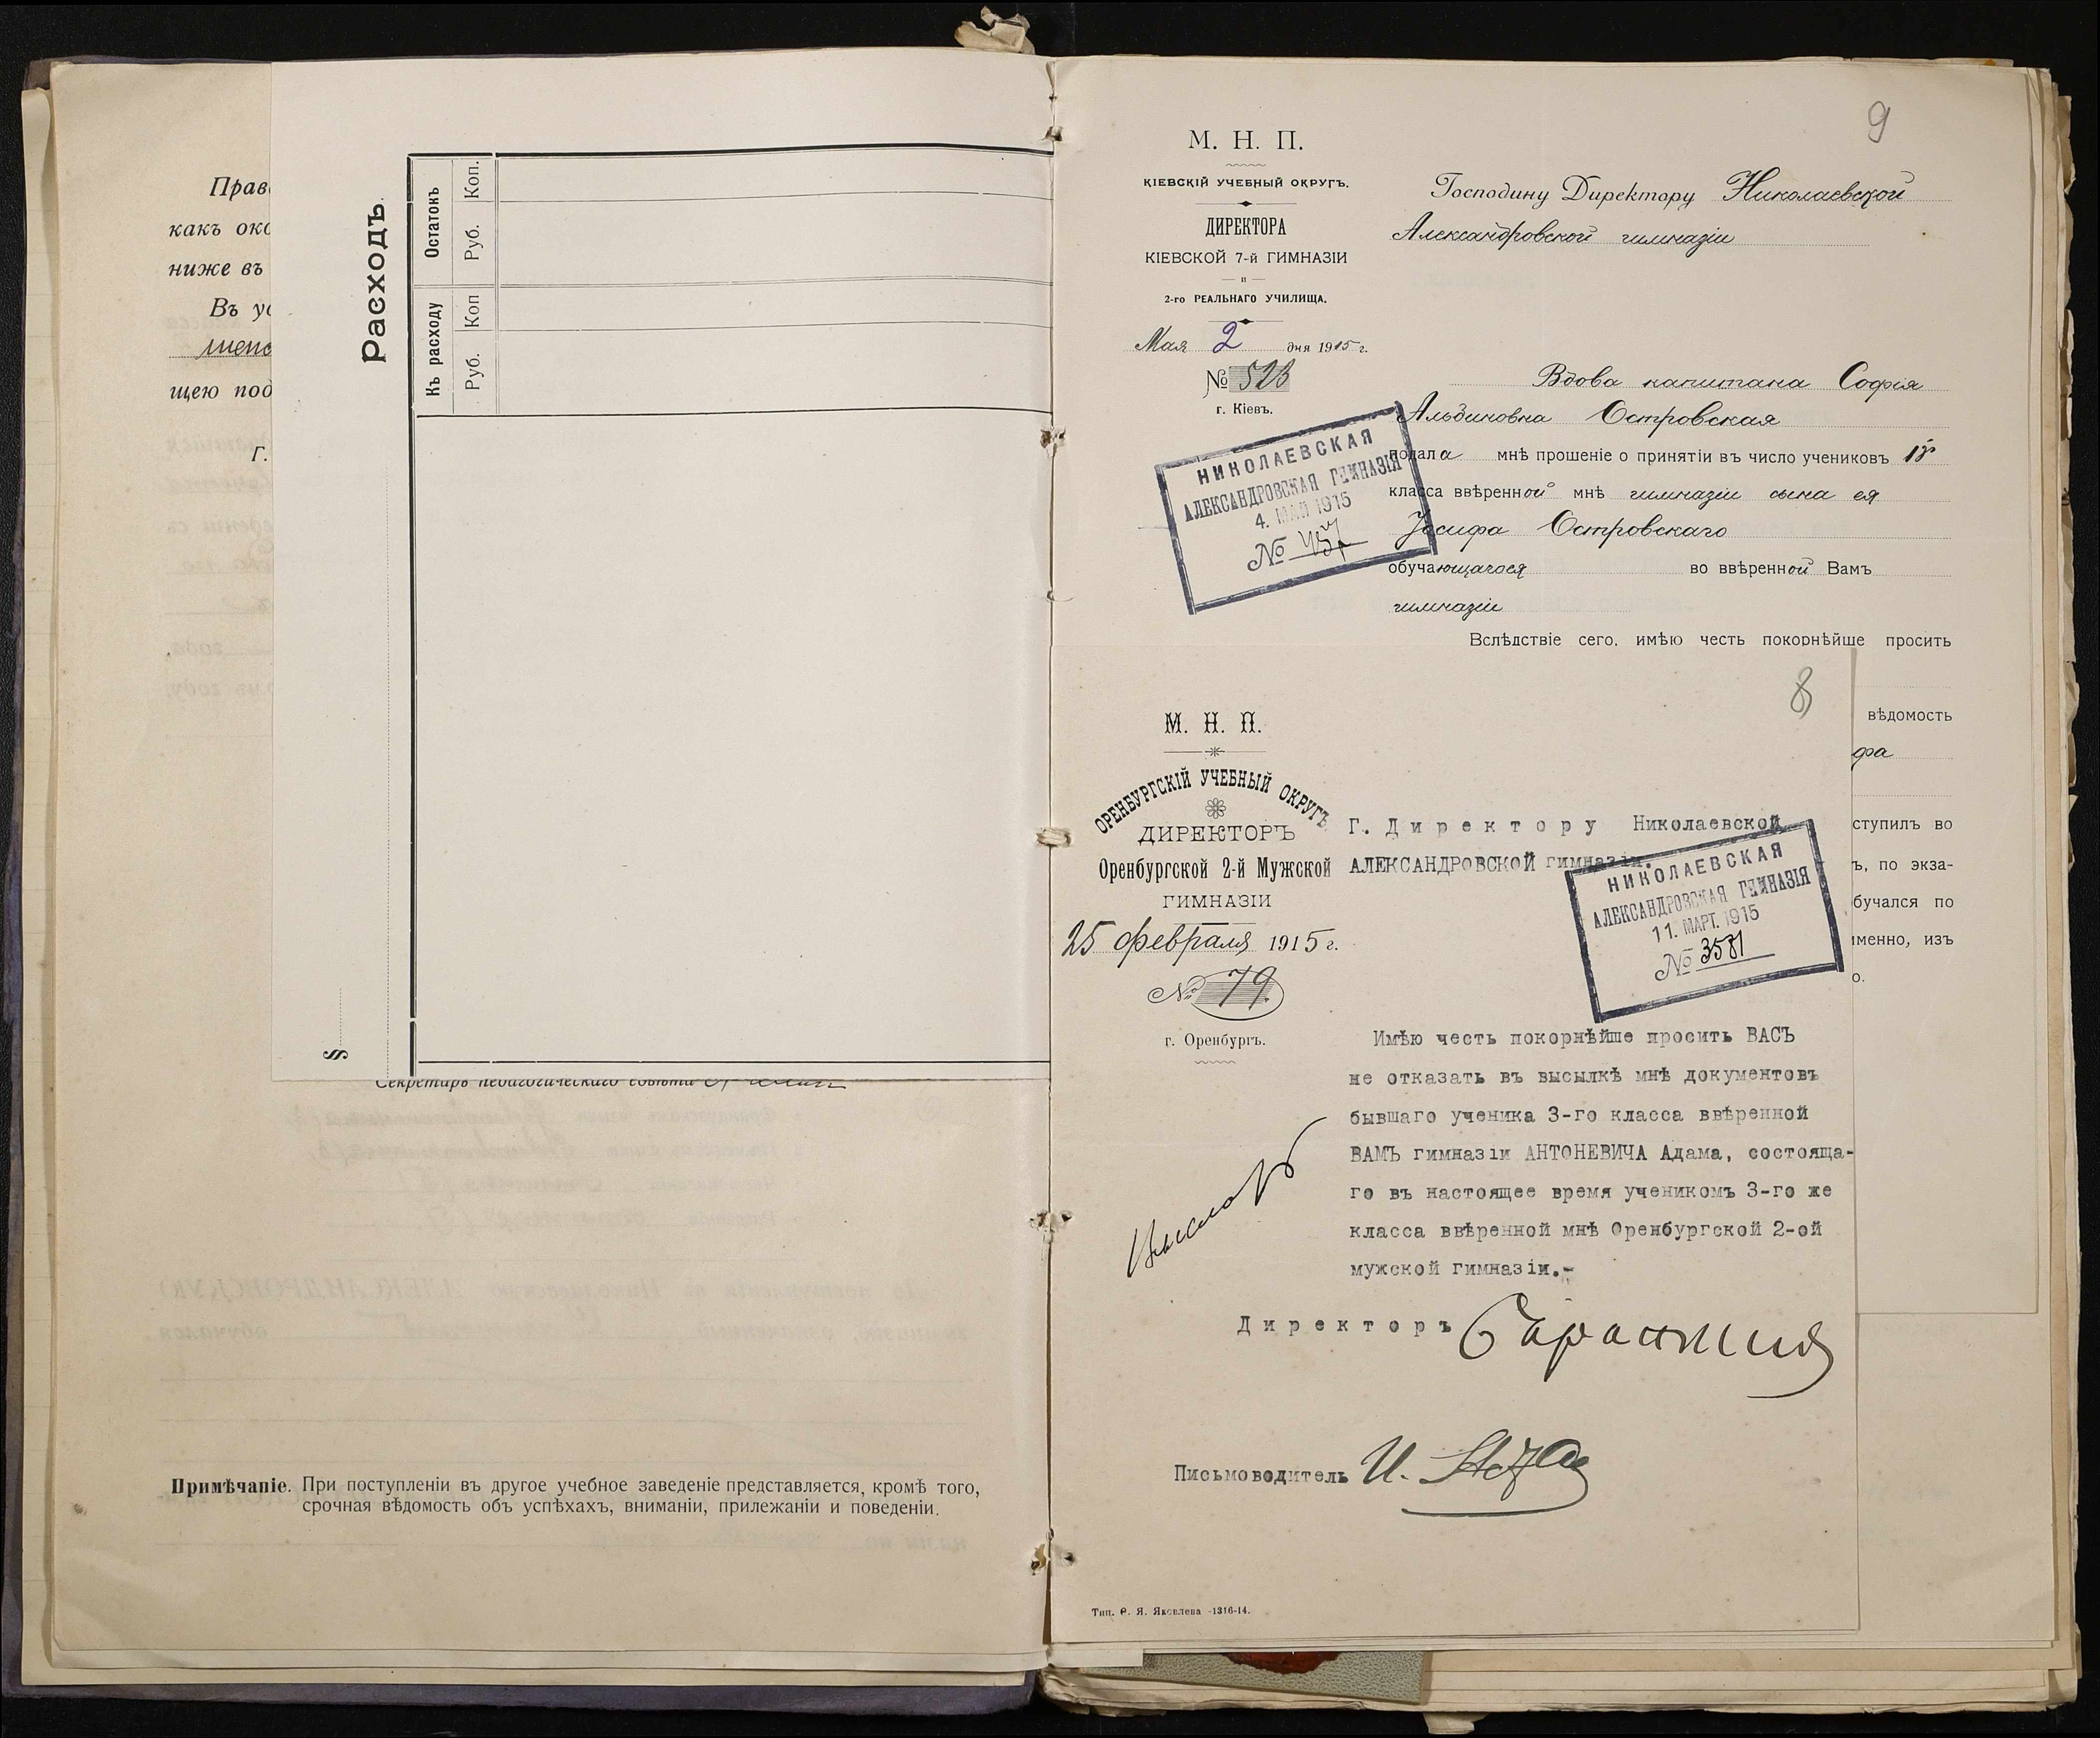 Прав
какъ око
ниже въ
Въ ус
щею под
Г.
Расходъ.
Остатокъ
Руб. Коп.
Къ расходу
Руб. Коп
§
Секретарь педагогическаго совѣта
Примѣчаніе. При поступленіи въ другое учебное заведеніе представляется, кромѣ того,
срочная вѣдомость объ успѣхахъ, вниманіи, прилежаніи и поведеніи.
9
М. Н. П.
КІЕВСКІЙ УЧЕБНЫЙ ОКРУГЪ.
ДИРЕКТОРА
КІЕВСКОЙ 7-й ГИМНАЗІИ
и
2-го РЕАЛЬНАГО УЧИЛИЩА.
Мая 2 дня 1915 г.
№ 523
г. Кіевъ.
НИКОЛАЕВСКАЯ
АЛЕКСАНДРОВСКАЯ ГИМНАЗІЯ
4. МАЙ 1915
№
Господину Директору Николаевской
Александровской гимназіи
Вдова капитана Софія
Альбиновна Островская
подала мнѣ прошеніе о принятіи въ число учениковъ
класса ввѣренной мнѣ гимназіи сына ея
Іосифа Островскаго
обучающагося во ввѣренной Вамъ
гимназіи
Вслѣдствіе сего, имѣю честь покорнѣйше просить
вѣдомость
фа
ступилъ во
ъ, по экза-
бучался по
именно, изъ
о.
8
М. Н. П.
ОРЕНБУРГСКІЙ УЧЕБНЫЙ ОКРУГЪ
ДИРЕКТОРЪ
Оренбургской 2-й Мужской
ГИМНАЗІИ
25 февраля 1915 г.
№ 79.
г. Оренбургъ.
Г. Директору Николаевской
АЛЕКСАНДРОВСКОЙ гимназіи.
НИКОЛАЕВСКАЯ
АЛЕКСАНДРОВСКАЯ ГИМНАЗІЯ
11. МАРТ. 1915
№ 3581
Имѣю честь покорнѣйше просить ВАСЪ
не отказать въ высылкѣ мнѣ документовъ
бывшаго ученика 3-го класса ввѣренной
ВАМЪ гимназіи АНТОНЕВИЧА Адама, состояща-
го въ настоящее время ученикомъ 3-го же
класса ввѣренной мнѣ Оренбургской 2-ой
мужской гимназіи.-
Директоръ
Письмоводитель И.
Тип. Ѳ. Я. Яковлева -1316-14.